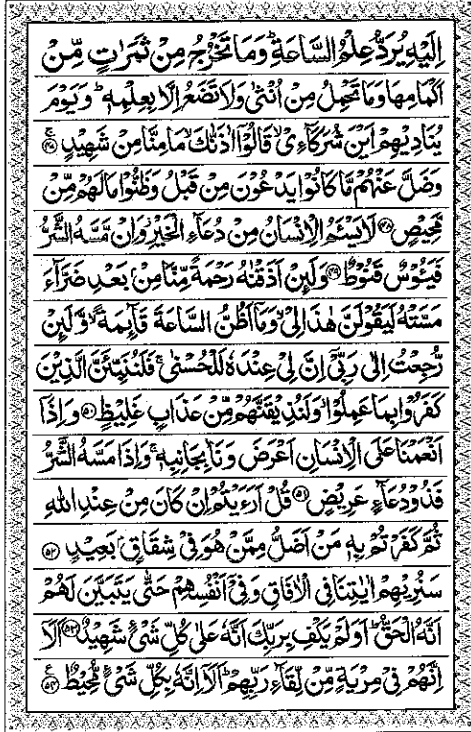 اِلَيْهِ يُرَدُّ عِلْمُ السَّاعَةِ ؕ وَمَا تَخْرُجُ مِنْ ثَمَرٰتٍ مِّنْ
اَكْمَامِهَا وَمَا تَحْمِلُ مِنْ اُنْثٰى وَلَا تَضَعُ اِلَّا بِعِلْمِهٖ ؕ وَيَوْمَ
يُنَادِيْهِمْ اَيْنَ شُرَكَآءِىْ ۙ قَالُوْۤا اٰذَنّٰكَ ۙ مَا مِنَّا مِنْ شَهِيْدٍ ۚ
وَضَلَّ عَنْهُمْ مَّا كَانُوْا يَدْعُوْنَ مِنْ قَبْلُ وَظَنُّوْا مَا لَهُمْ مِّنْ
مَّحِيْصٍ لَا يَسْـَٔمُ الْاِنْسَانُ مِنْ دُعَآءِ الْخَيْرِ ۫ وَاِنْ مَّسَّهُ الشَّرُّ
فَيَـُٔوْسٌ قَنُوْطٌ وَلَئِنْ اَذَقْنٰهُ رَحْمَةً مِّنَّا مِنْۢ بَعْدِ ضَرَّآءَ
مَسَّتْهُ لَيَقُوْلَنَّ هٰذَا لِىْ ۙ وَمَاۤ اَظُنُّ السَّاعَةَ قَآئِمَةً ۙ وَّلَئِنْ
رُّجِعْتُ اِلٰى رَبِّىْۤ اِنَّ لِىْ عِنْدَهٗ لَلْحُسْنٰى ۚ فَلَنُنَبِّئَنَّ الَّذِيْنَ
كَفَرُوْا بِمَا عَمِلُوْا ۫ وَلَنُذِيْقَنَّهُمْ مِّنْ عَذَابٍ غَلِيْظٍ ۵۰ وَاِذَاۤ
اَنْعَمْنَا عَلَى الْاِنْسَانِ اَعْرَضَ وَنَاٰ بِجَانِبِهٖ ۚ وَاِذَا مَسَّهُ الشَّرُّ
فَذُوْ دُعَآءٍ عَرِيْضٍ ۵۱ قُلْ اَرَءَيْتُمْ اِنْ كَانَ مِنْ عِنْدِ اللّٰهِ
ثُمَّ كَفَرْتُمْ بِهٖ مَنْ اَضَلُّ مِمَّنْ هُوَ فِىْ شِقَاقٍۭ بَعِيْدٍ ۵۲
سَنُرِيْهِمْ اٰيٰتِنَا فِى الْاٰفَاقِ وَفِىْۤ اَنْفُسِهِمْ حَتّٰى يَتَبَيَّنَ لَهُمْ
اَنَّهُ الْحَقُّ ؕ اَوَلَمْ يَكْفِ بِرَبِّكَ اَنَّهٗ عَلٰى كُلِّ شَىْءٍ شَهِيْدٌ ۵۳ اَلَاۤ
اِنَّهُمْ فِىْ مِرْيَةٍ مِّنْ لِّقَآءِ رَبِّهِمْ ؕ اَلَاۤ اِنَّهٗ بِكُلِّ شَىْءٍ مُّحِيْطٌ ۵۴